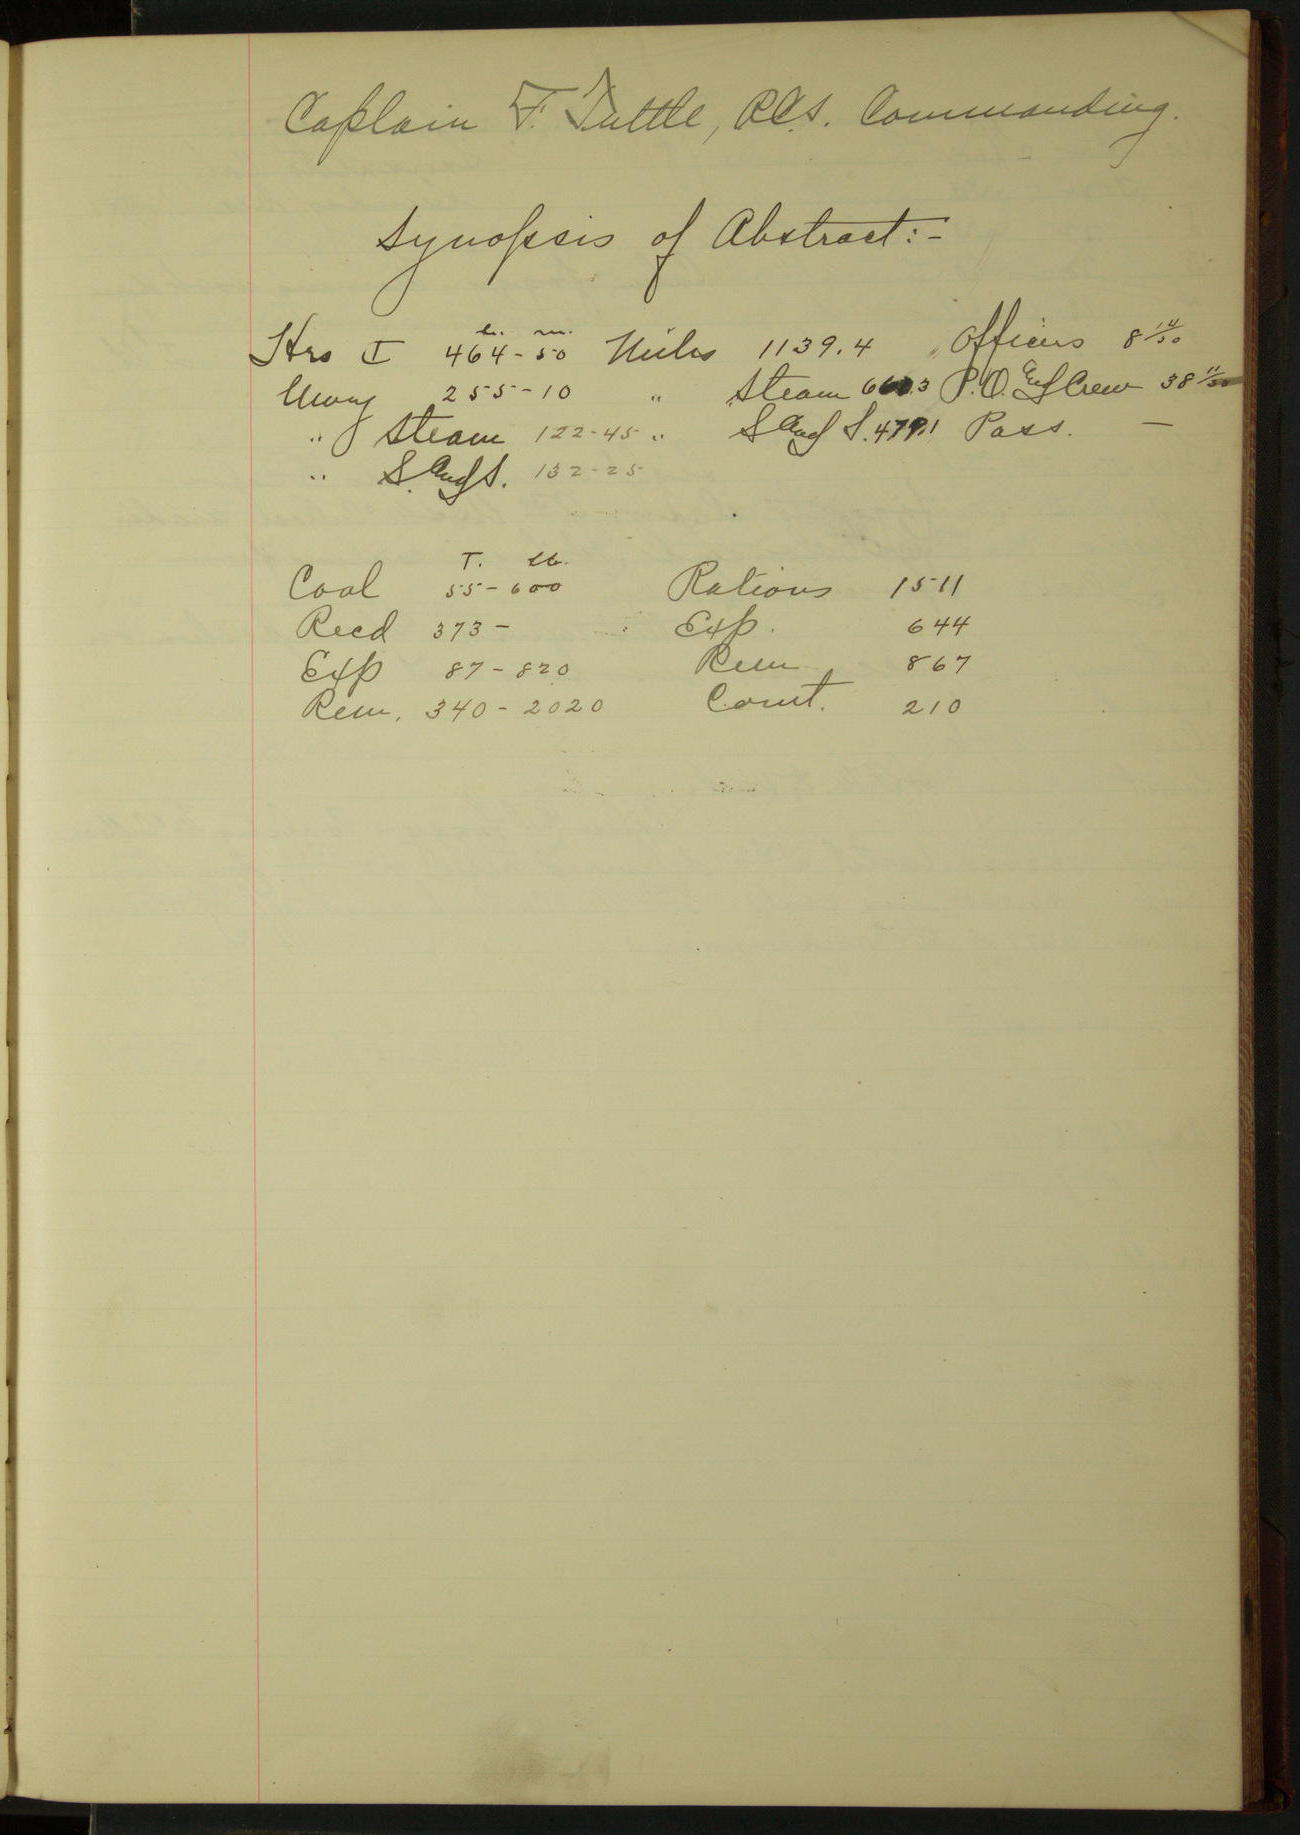 Captain F. Tuttle, R.C.S. Commanding.
Synopsis of Abstract:-
h. m.
Hrs I 464-50 Miles 1139.4 Officers 8 14/30
Uway 255-10 " Steam 660.3 P.O. and Crew 38 11/30
" Steam 122-45 " S and S. 479.1 Pass. —
" S. and S. 132-25
T. lb.
Coal 55-600 Rations 1511
Recd 373- Exp. 644
Exp 87-820 Rem 867
Rem. 340-2020 Comt. 210